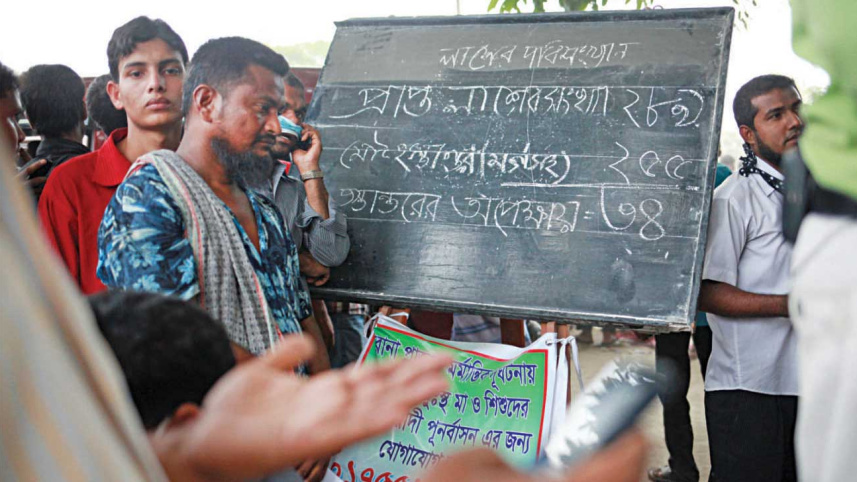 লাশের পরিসংখ্যান
প্রাপ্ত লাশের সংখ্যা ২৮৯
মোট হস্তান্তর (মর্গসহ) ২৫৫
হস্তান্তরের অপেক্ষায় = ৩৪
রানা মর্মান্তিক দূর্ঘটনায়
মা ও শিশুদের
পূনর্বাসন এর জন্য
যোগাযোগ